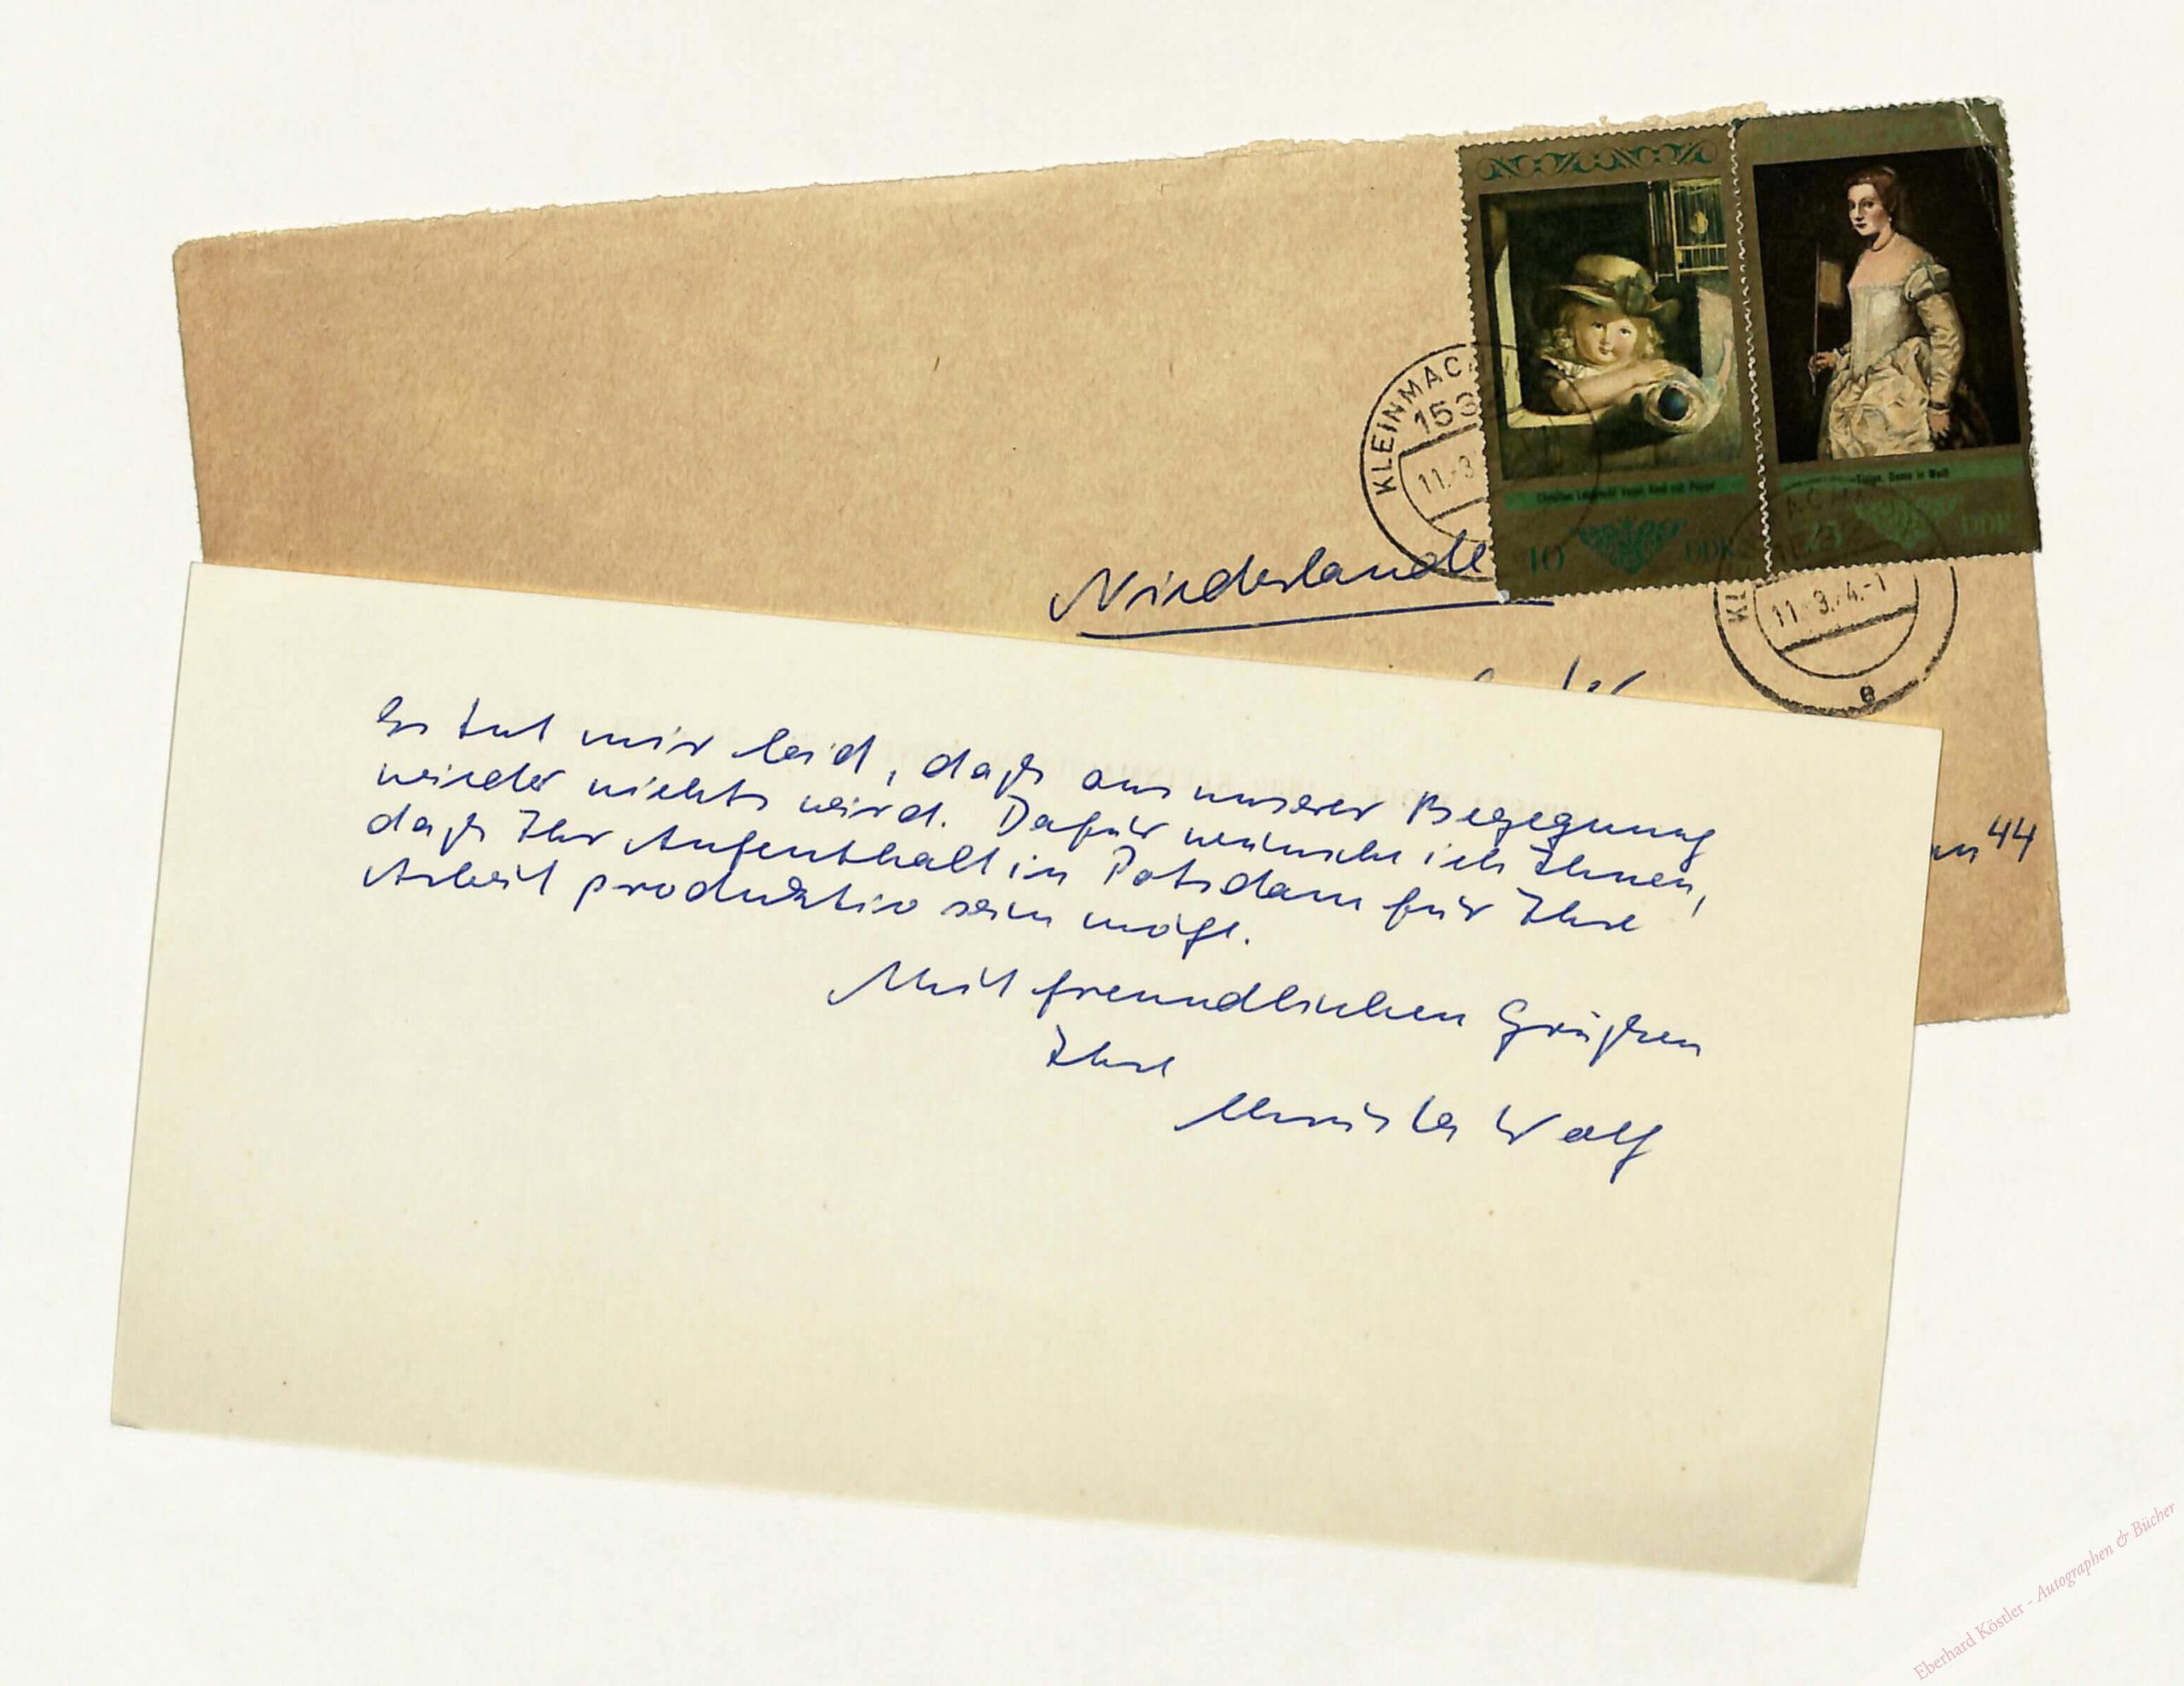 KLEINMAC
153
11.-3
Christian Leberecht Vogel, Kind mit Puppe
10 DDR
Tizian, Dame in Weiß
DDR
11.-3.
e
Niederlande
44
Es tut mir leid, daß aus unserer Begegnung
wieder nichts wird. Dafür wünsche ich Ihnen,
daß Ihr Aufenthalt in Potsdam für Ihre
Arbeit produktiv sein möge.
Mit freundlichen Grüßen
Ihre
Christa Wolf
Eberhard Köstler - Autographen & Bücher